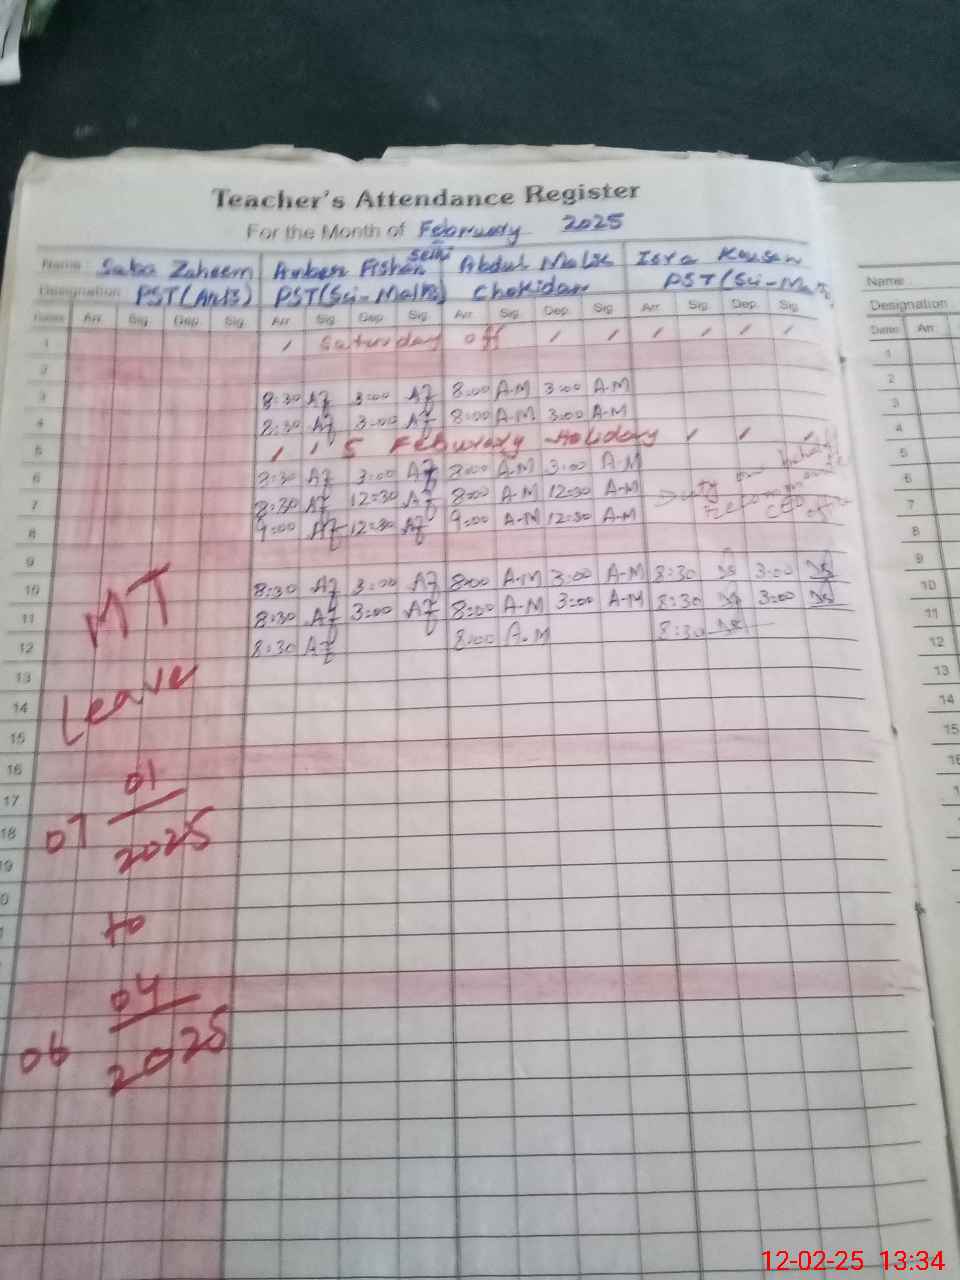 Teacher's Attendance Register
For the Month of February 2025
Name : Saba Zaheem Anber Fishan Sethi Abdul Malik Isra Kousar
Name :
Designation PST(Arts) PST(Sci-Maths) Chokidar PST(Sci-Maths)
Designation
Dates Arr. Sig. Dep. Sig. Arr. Sig. Dep. Sig. Arr. Sig. Dep. Sig. Arr. Sig. Dep. Sig.
Date Arr.
1 Saturday off
2
3 8:30 AF 3:00 AF 8:00 A.M 3:00 A.M
4 8:30 AF 3:00 AF 8:00 A.M 3:00 A.M
5 5 Feburary Holiday
6 8:30 AF 3:00 AF 8:00 A.M 3:00 A.M
7 8:30 AF 12:30 AF 8:00 A.M 12:30 A.M Duty
8 9:00 AF 12:30 AF 9:00 A.M 12:30 A.M
9
10 8:30 AF 3:00 AF 8:00 A.M 3:00 A.M 8:30 3:00
11 8:30 AF 3:00 AF 8:00 A.M 3:00 A.M 8:30 3:00
12 8:30 AF 8:00 A.M 8:30
13
14
15
16
17
18
19
MT
Leave
07 01
2025
to
06 04
2025
1
2
3
4
5
6
7
8
9
10
11
12
13
14
15
12-02-25 13:34